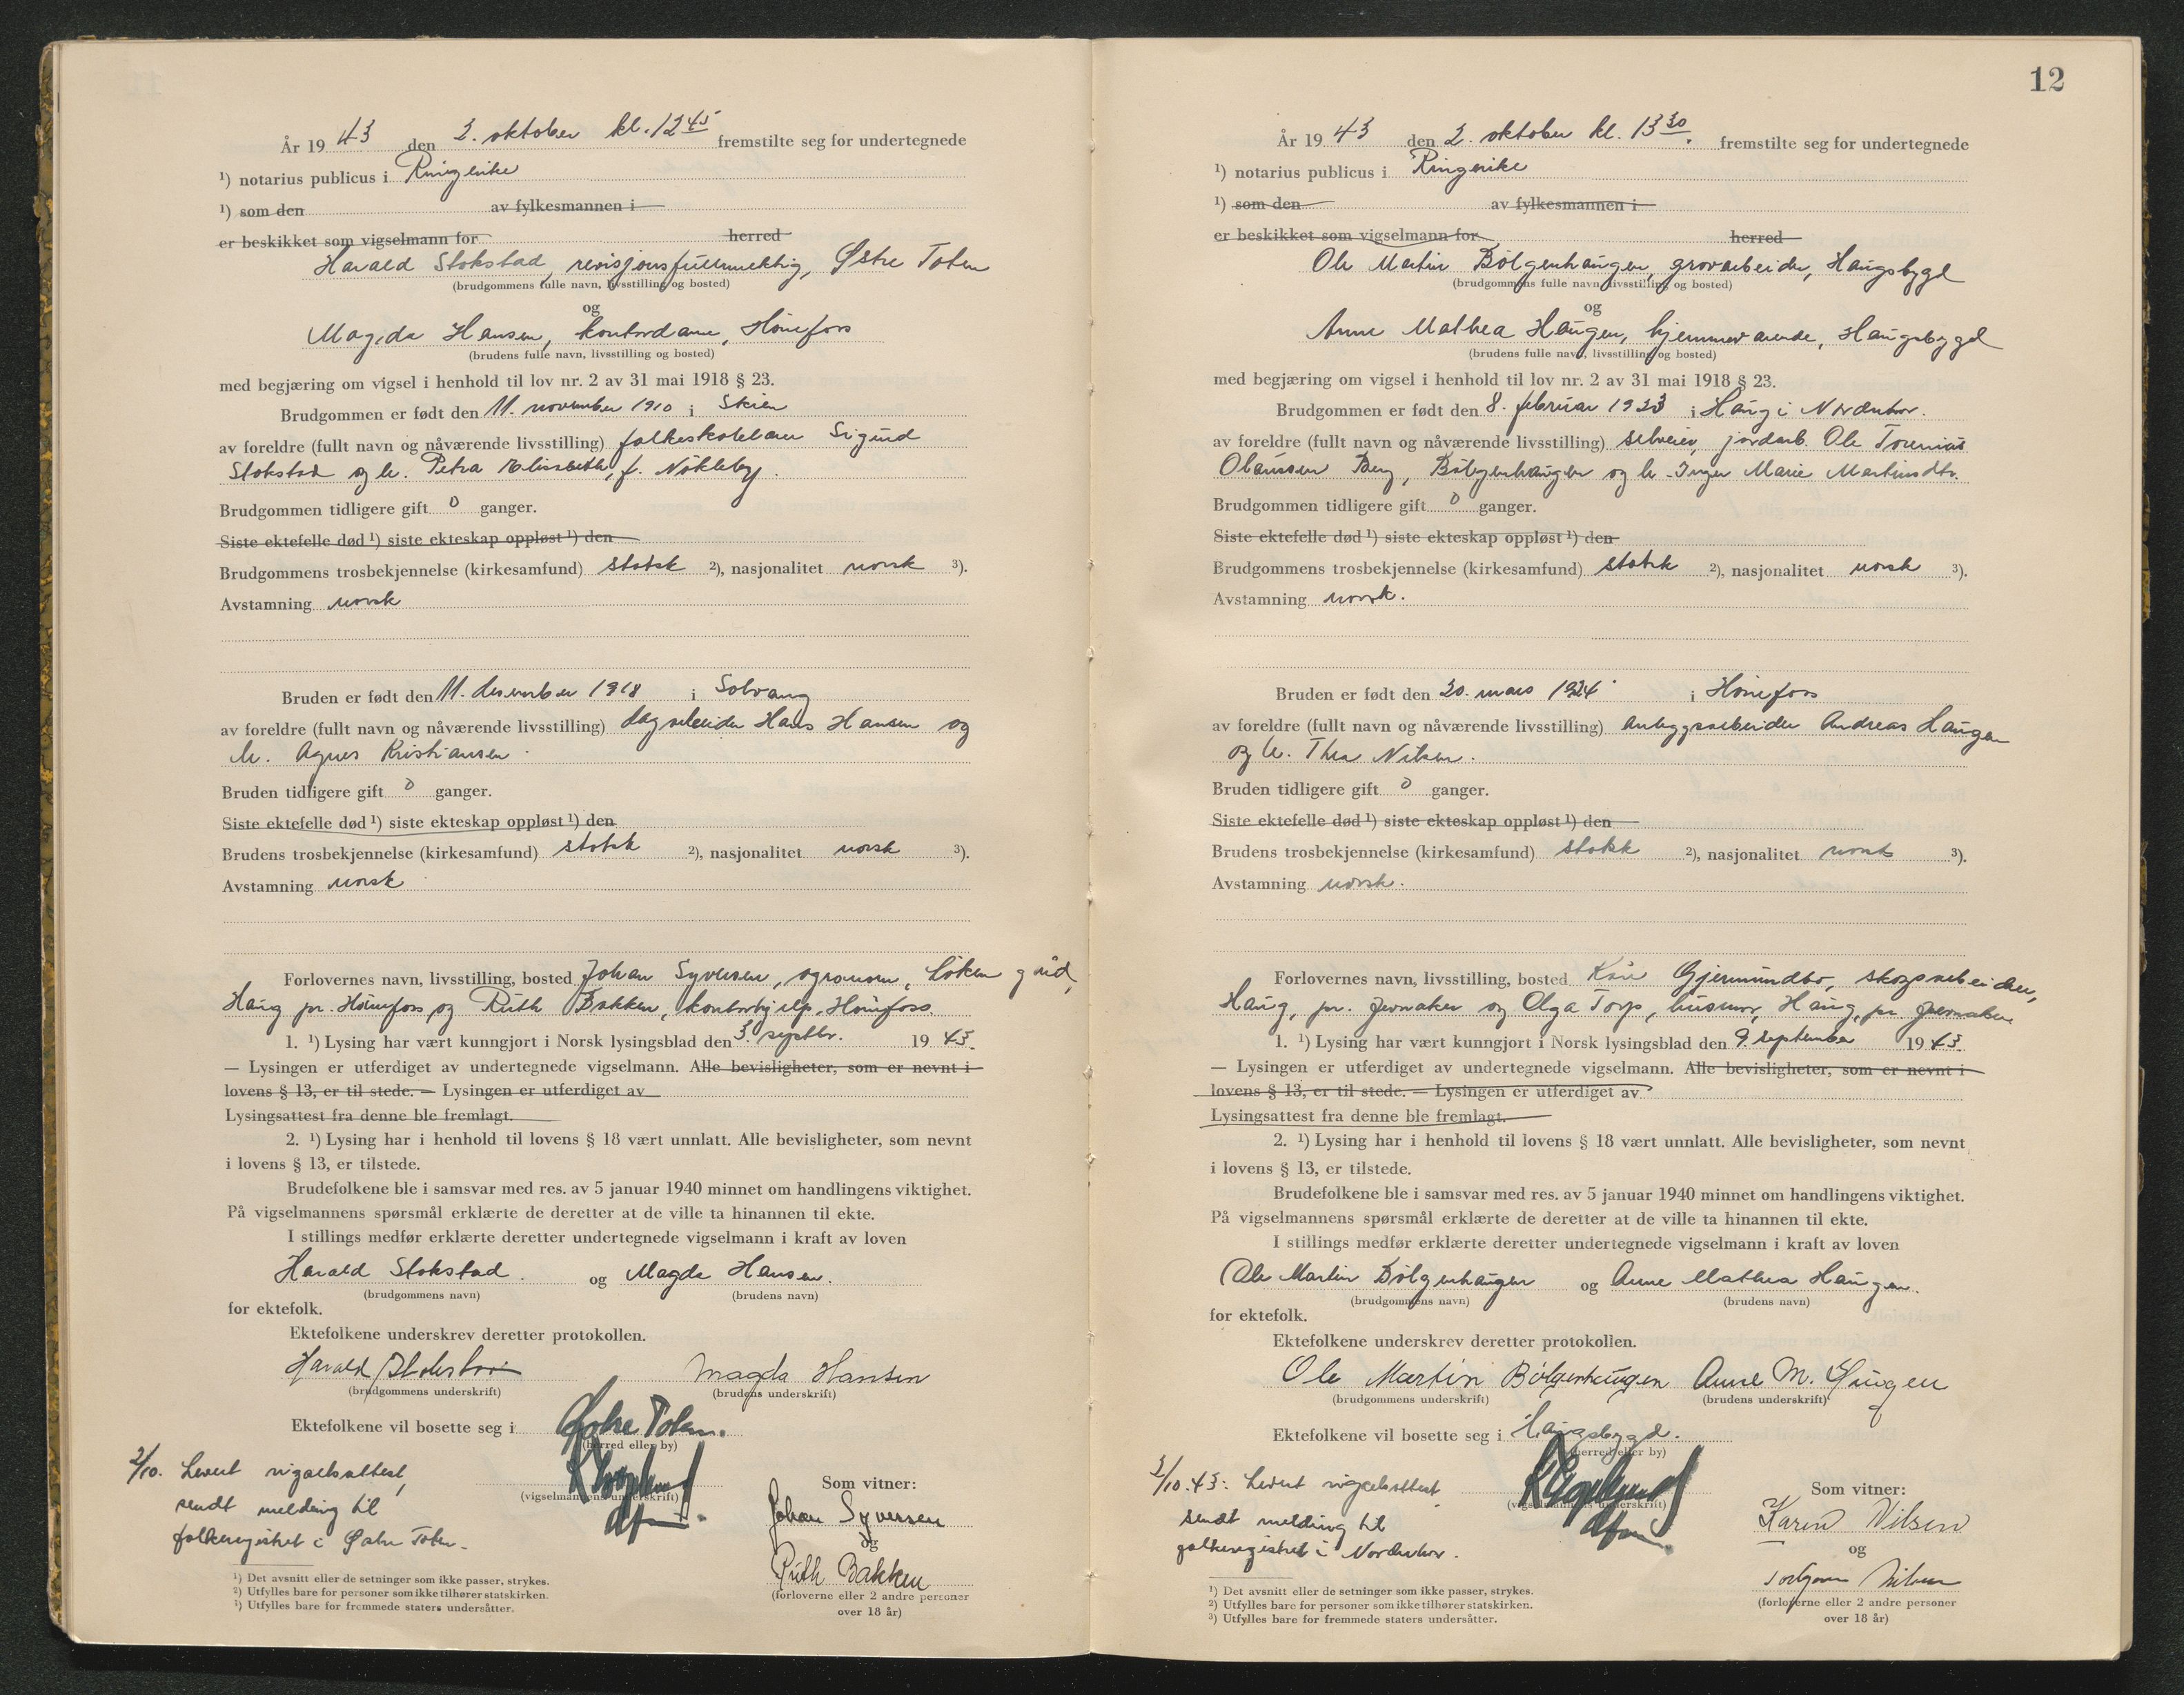 År 1943 den 2. oktober kl. 12 45 fremstilte seg for undertegnede
¹) notarius publicus i Ringerike
¹) som den av fylkesmannen i
er beskikket som vigselmann for herred
Harald Stokstad, revisjonsfullmektig, Østre Toten
(brudgommens fulle navn, livsstilling og bosted)
og
Magda Hansen, kontordame, Hønefoss
(brudens fulle navn, livsstilling og bosted)
med begjæring om vigsel i henhold til lov nr. 2 av 31 mai 1918 § 23.
Brudgommen er født den 11. november 1910 i Skien
av foreldre (fullt navn og nåværende livsstilling) folkeskolelærer Sigurd
Stokstad og h. Petra Elisabeth, f. Nøkleby.
Brudgommen tidligere gift 0 ganger.
Siste ektefelle død ¹) siste ekteskap oppløst ¹) den
Brudgommens trosbekjennelse (kirkesamfund) statsk ²), nasjonalitet norsk ³).
Avstamning norsk
Bruden er født den 11. desember 1918 i Solvang
av foreldre (fullt navn og nåværende livsstilling) dagarbeider Hans Hansen og
h. Agnes Kristiansen
Bruden tidligere gift 0 ganger.
Siste ektefelle død ¹) siste ekteskap oppløst ¹) den
Brudens trosbekjennelse (kirkesamfund) statsk ²), nasjonalitet norsk ³).
Avstamning norsk
Forlovernes navn, livsstilling, bosted Johan Syversen, agronom, Løken gård,
Haug pr. Hønefoss og Ruth Bakken, kontorhjelp, Hønefoss
1. ¹) Lysing har vært kunngjort i Norsk lysingsblad den 3. septbr. 1943.
— Lysingen er utferdiget av undertegnede vigselmann. Alle bevisligheter, som er nevnt i
lovens § 13, er til stede. — Lysingen er utferdiget av
Lysingsattest fra denne ble fremlagt.
2. ¹) Lysing har i henhold til lovens § 18 vært unnlatt. Alle bevisligheter, som nevnt
i lovens § 13, er tilstede.
Brudefolkene ble i samsvar med res. av 5 januar 1940 minnet om handlingens viktighet.
På vigselmannens spørsmål erklærte de deretter at de ville ta hinannen til ekte.
I stillings medfør erklærte deretter undertegnede vigselmann i kraft av loven
Harald Stokstad. og Magda Hansen.
(brudgommens navn) (brudens navn)
for ektefolk.
Ektefolkene underskrev deretter protokollen.
Harald Stokstad Magda Hansen
(brudgommens underskrift) (brudens underskrift)
Ektefolkene vil bosette seg i Østre Toten.
(herred eller by)
2/10. Levert vigselsattest,
sendt melding til
folkeregistret i Østre Toten.
(vigselmannens underskrift)
Som vitner:
Johan Syversen
og
Ruth Bakken
(forloverne eller 2 andre personer
over 18 år)
¹) Det avsnitt eller de setninger som ikke passer, strykes.
²) Utfylles bare for personer som ikke tilhører statskirken.
³) Utfylles bare for fremmede staters undersåtter.
12
År 1943 den 2. oktober kl. 13 30. fremstilte seg for undertegnede
¹) notarius publicus i Ringerike
¹) som den av fylkesmannen i
er beskikket som vigselmann for herred
Ole Martin Bølgenhaugen, grovarbeider, Haugsbygd
(brudgommens fulle navn, livsstilling og bosted)
og
Anne Mathea Haugen, hjemmeværende, Haugsbygd
(brudens fulle navn, livsstilling og bosted)
med begjæring om vigsel i henhold til lov nr. 2 av 31 mai 1918 § 23.
Brudgommen er født den 8. februar 1923 i Haug i Norderhov.
av foreldre (fullt navn og nåværende livsstilling) selveier, jordarb. Ole Torenius
Olaussen Berg, Bølgenhaugen og h. Inger Marie Martinsdtr.
Brudgommen tidligere gift 0 ganger.
Siste ektefelle død ¹) siste ekteskap oppløst ¹) den
Brudgommens trosbekjennelse (kirkesamfund) statsk ²), nasjonalitet norsk ³).
Avstamning norsk.
Bruden er født den 20. mars 1924 i Hønefoss
av foreldre (fullt navn og nåværende livsstilling) anleggsarbeider Andreas Haugen
og h. Thea Nilsen.
Bruden tidligere gift 0 ganger.
Siste ektefelle død ¹) siste ekteskap oppløst ¹) den
Brudens trosbekjennelse (kirkesamfund) statsk ²), nasjonalitet norsk ³).
Avstamning norsk.
Forlovernes navn, livsstilling, bosted Kåre Gjermundbo, skogsarbeider,
Haug, pr. Jevnaker og Olga Torp, husmor, Haug, pr. Jevnaker
1. ¹) Lysing har vært kunngjort i Norsk lysingsblad den 9. september 1943.
— Lysingen er utferdiget av undertegnede vigselmann. Alle bevisligheter, som er nevnt i
lovens § 13, er til stede. — Lysingen er utferdiget av
Lysingsattest fra denne ble fremlagt.
2. ¹) Lysing har i henhold til lovens § 18 vært unnlatt. Alle bevisligheter, som nevnt
i lovens § 13, er tilstede.
Brudefolkene ble i samsvar med res. av 5 januar 1940 minnet om handlingens viktighet.
På vigselmannens spørsmål erklærte de deretter at de ville ta hinannen til ekte.
I stillings medfør erklærte deretter undertegnede vigselmann i kraft av loven
Ole Martin Bølgenhaugen og Anne Mathea Haugen.
(brudgommens navn) (brudens navn)
for ektefolk.
Ektefolkene underskrev deretter protokollen.
Ole Martin Bølgenhaugen Anne M. Haugen
(brudgommens underskrift) (brudens underskrift)
Ektefolkene vil bosette seg i Haugsbygd.
(herred eller by)
2/10.43: Levert vigselsattest,
sendt melding til
folkeregistret i Norderhov.
(vigselmannens underskrift)
Som vitner:
Karen Nilsen
og
Nilsen
(forloverne eller 2 andre personer
over 18 år)
¹) Det avsnitt eller de setninger som ikke passer, strykes.
²) Utfylles bare for personer som ikke tilhører statskirken.
³) Utfylles bare for fremmede staters undersåtter.